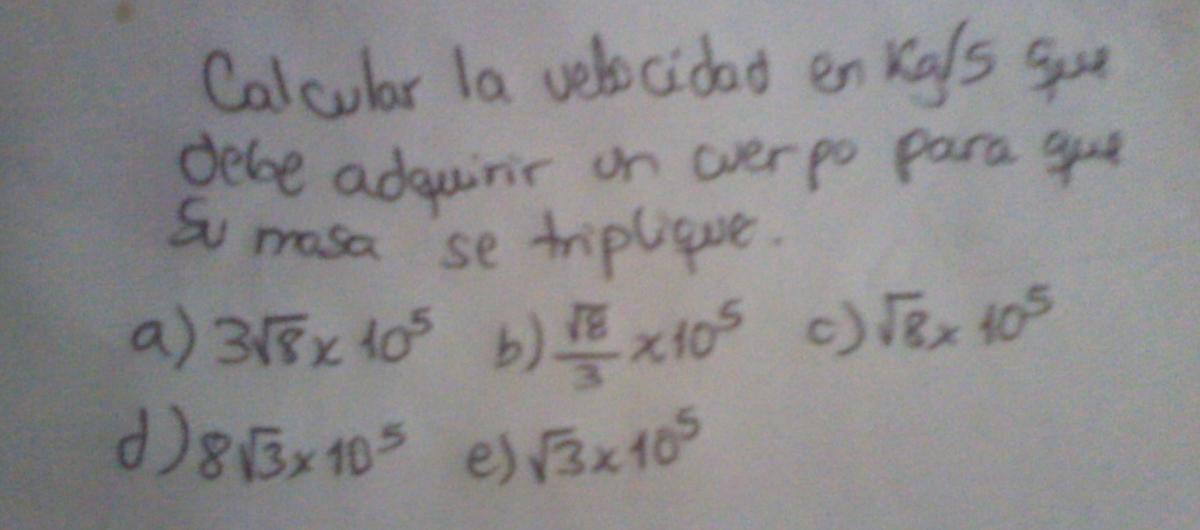 Calcular la velocidad en Kg/s que
debe adquirir un cuerpo para que
su masa se triplique.
a) 3√8 x 10⁵ b) √8/3 x 10⁵ c) √8 x 10⁵
d) 8√3 x 10⁵ e) √3 x 10⁵